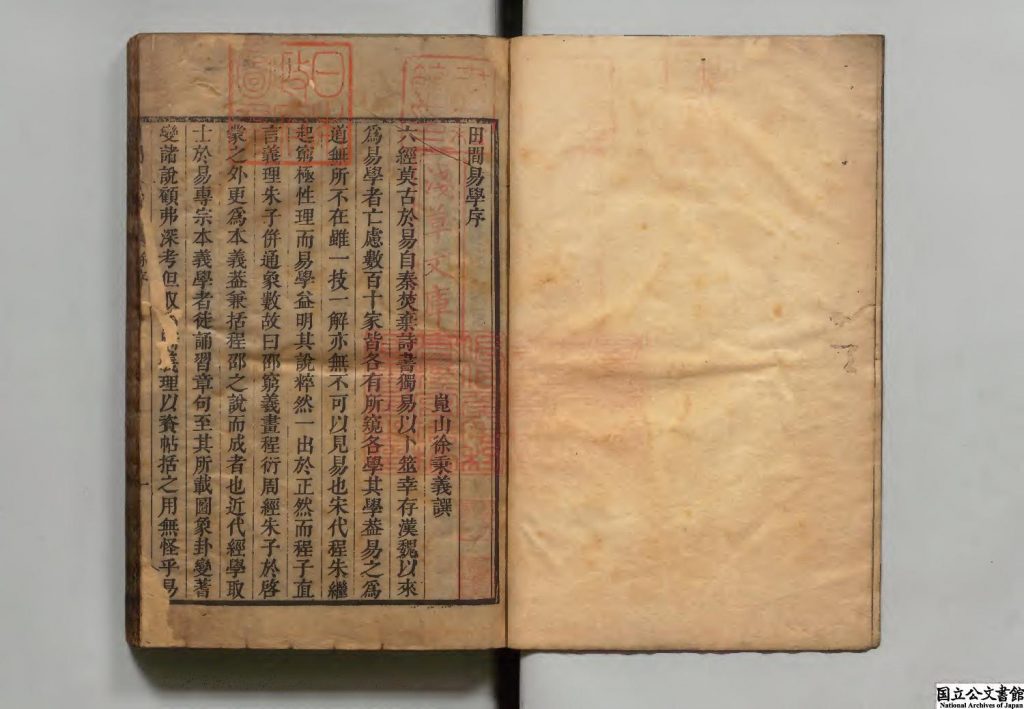 田間易學序
崑山徐秉義譔
六經莫古於易自秦焚棄詩書獨易以卜筮幸存漢魏以來
爲易學者亡慮數百十家皆各有所窺各學其學葢易之爲
道無所不在雖一技一解亦無不可以見易也宋代程朱繼
起窮極性理而易學益明其說粹然一出於正然而程子直
言義理朱子併通象數故曰邵窮羲畫程衍周經朱子於啓
蒙之外更爲本義葢兼括程邵之說而成者也近代經學取
士於易專宗本義學者徒誦習章句至其所載圖象卦變蓍
變諸說顧弗深考但取義理以資帖括之用無怪乎易
淺草文庫
国立公文書館
National Archives of Japan